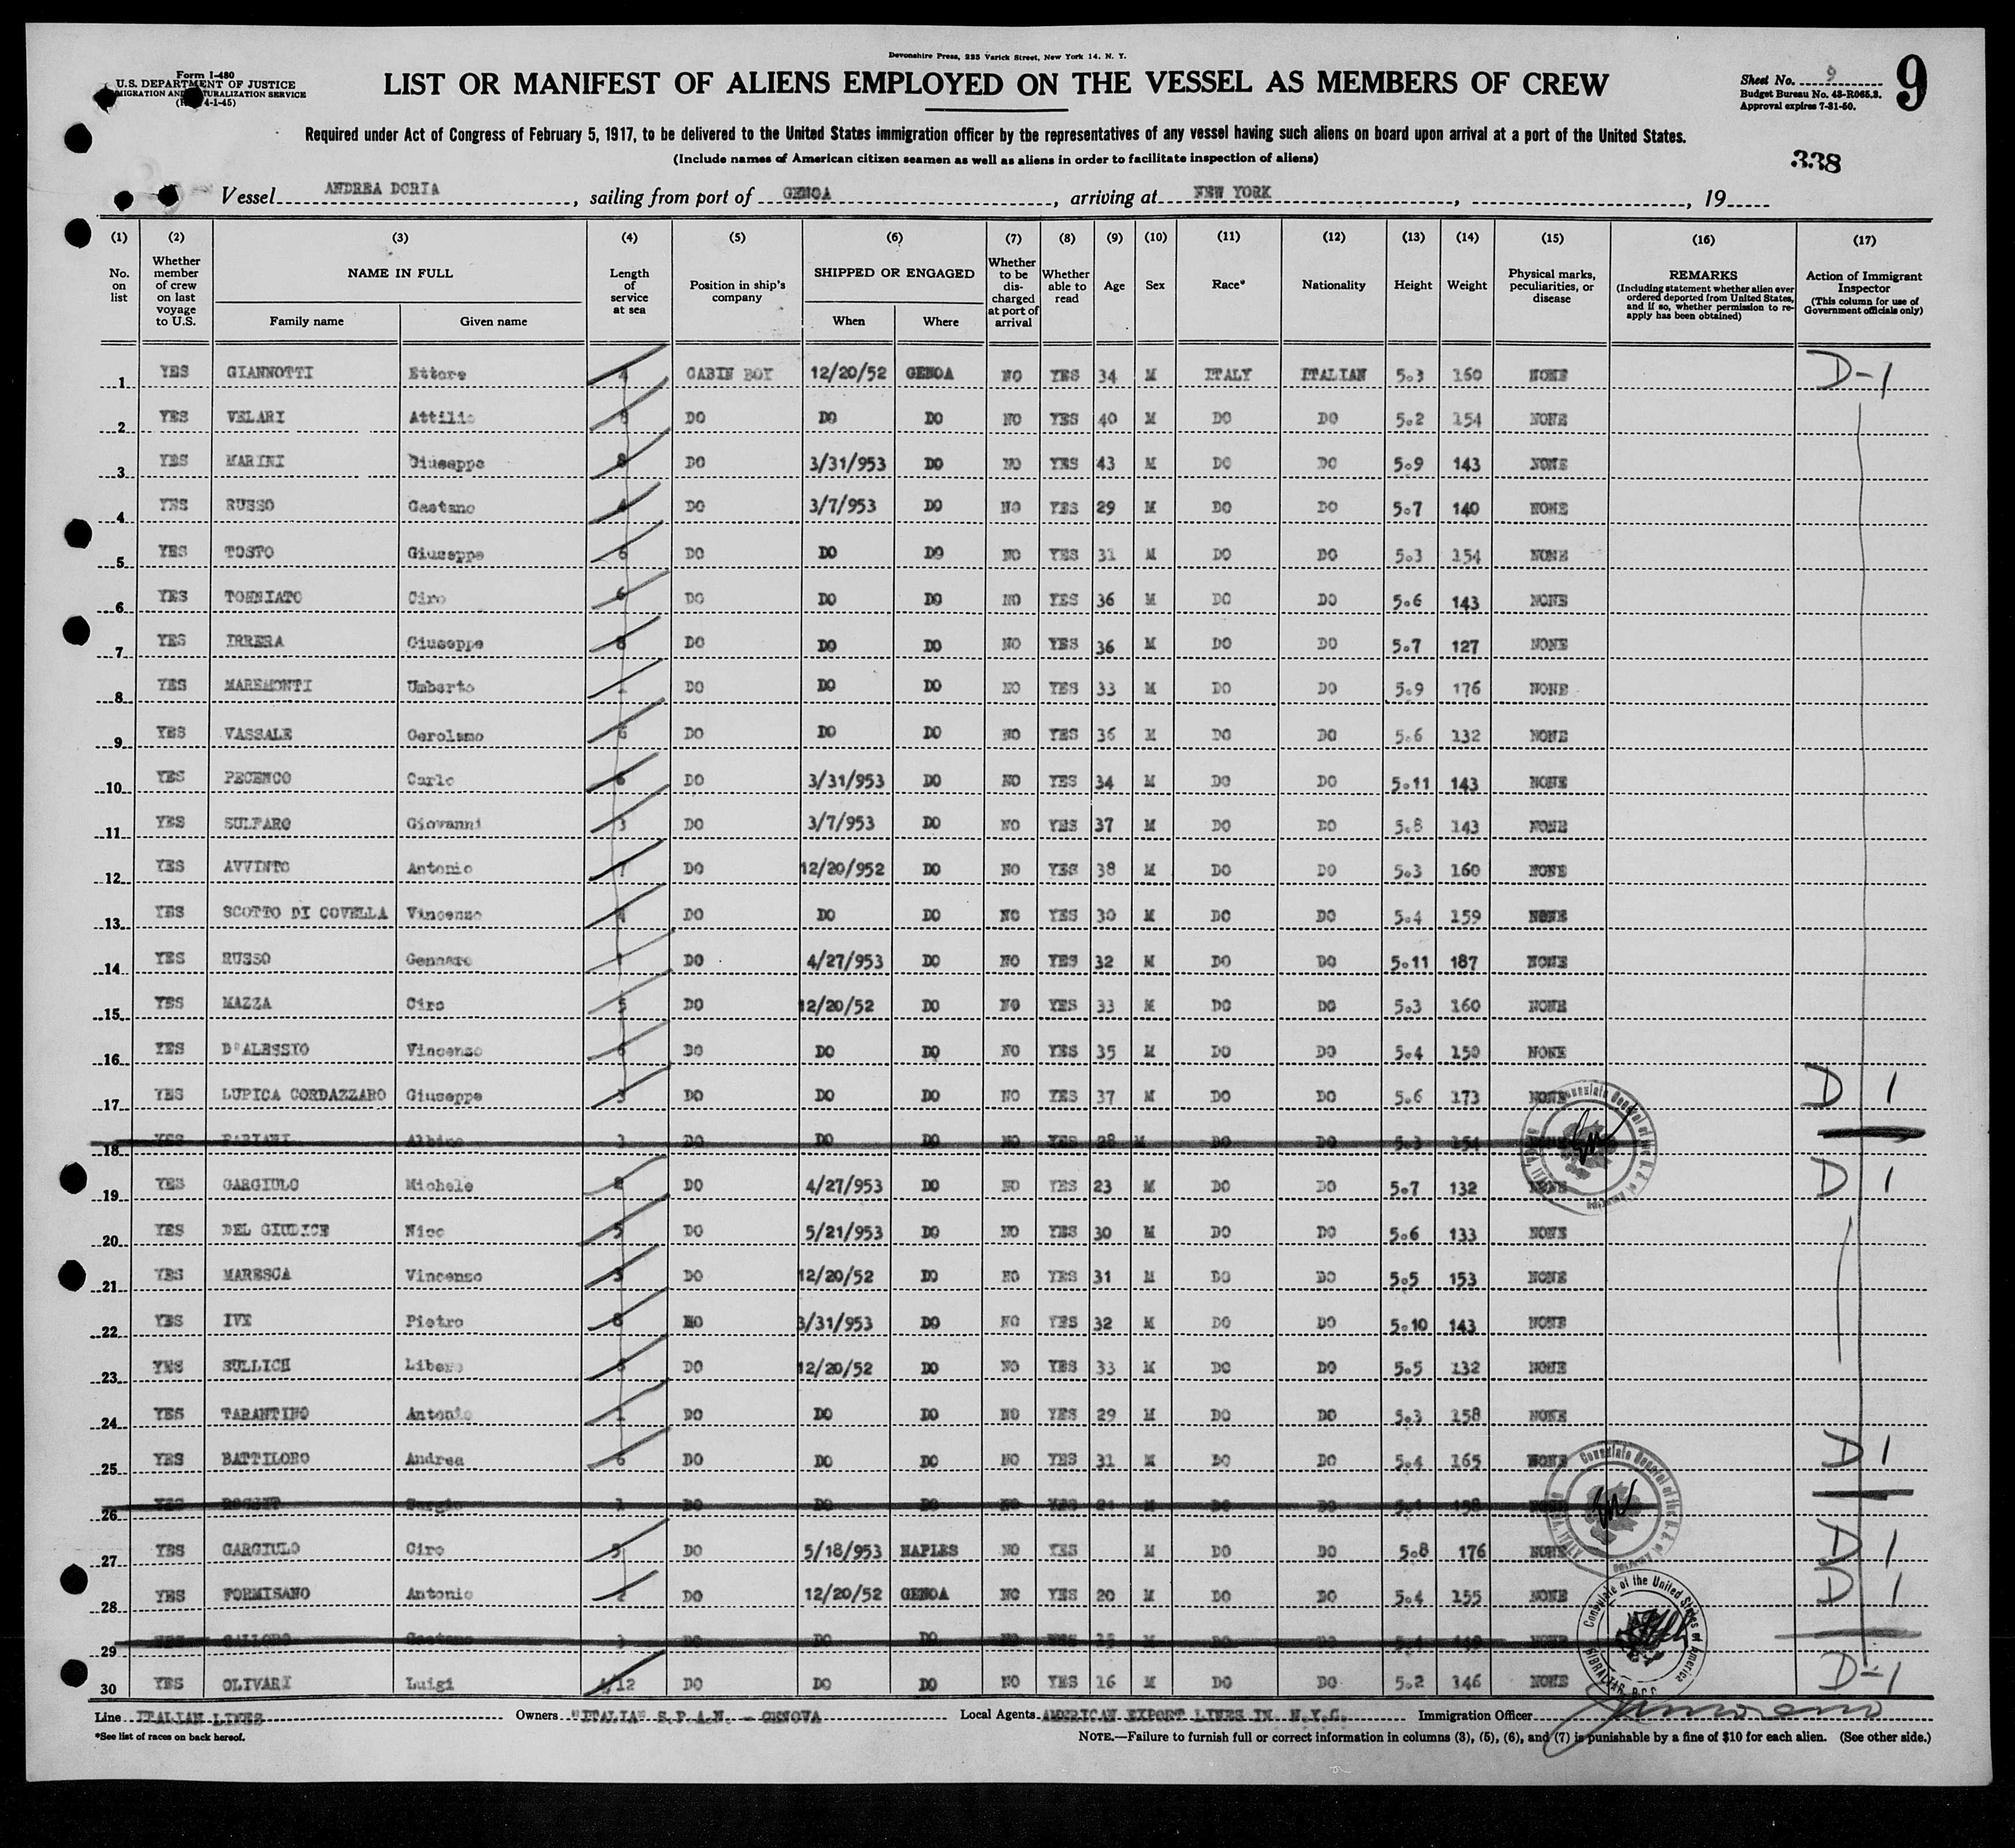 Devonshire Press, 225 Varick Street, New York 14, N. Y.
Form I-480
U.S. DEPARTMENT OF JUSTICE
IMMIGRATION AND NATURALIZATION SERVICE
4-1-45)
LIST OR MANIFEST OF ALIENS EMPLOYED ON THE VESSEL AS MEMBERS OF CREW
Sheet No. 9
Budget Bureau No. 43-R065.3.
Approval expires 7-31-50.
9
Required under Act of Congress of February 5, 1917, to be delivered to the United States immigration officer by the representatives of any vessel having such aliens on board upon arrival at a port of the United States.
(Include names of American citizen seamen as well as aliens in order to facilitate inspection of aliens)
338
Vessel ANDREA DORIA, sailing from port of GENOA, arriving at NEW YORK, , 19
(1) (2) (3) (4) (5) (6) (7) (8) (9) (10) (11) (12) (13) (14) (15) (16) (17)
No. on list
Whether member of crew on last voyage to U.S.
NAME IN FULL
Family name
Given name
Length of service at sea
Position in ship's company
SHIPPED OR ENGAGED
When
Where
Whether to be discharged at port of arrival
Whether able to read
Age
Sex
Race*
Nationality
Height
Weight
Physical marks, peculiarities, or disease
REMARKS
(Including statement whether alien ever ordered deported from United States, and if so, whether permission to reapply has been obtained)
Action of Immigrant Inspector
(This column for use of Government officials only)
1 YES GIANNOTTI Ettore 4 CABIN BOY 12/20/52 GENOA NO YES 34 M ITALY ITALIAN 5.3 160 NONE D-1
2 YES VELARI Attilio DO DO DO NO YES 40 M DO DO 5.2 154 NONE
3 YES MARINI Giuseppe 8 DO 3/31/953 DO NO YES 43 M DO DO 5.9 143 NONE
4 YES RUSSO Gaetano 4 DO 3/7/953 DO NO YES 29 M DO DO 5.7 140 NONE
5 YES TOSTO Giuseppe 6 DO DO DO NO YES 31 M DO DO 5.3 154 NONE
6 YES TOGNIATO Ciro 6 DO DO DO NO YES 36 M DO DO 5.6 143 NONE
7 YES IRRERA Giuseppe 8 DO DO DO NO YES 36 M DO DO 5.7 127 NONE
8 YES MAREMONTI Umberto DO DO DO NO YES 33 M DO DO 5.9 176 NONE
9 YES VASSALE Gerolamo 6 DO DO DO NO YES 36 M DO DO 5.6 132 NONE
10 YES PECENCO Carlo 6 DO 3/31/953 DO NO YES 34 M DO DO 5.11 143 NONE
11 YES SULFARO Giovanni 3 DO 3/7/953 DO NO YES 37 M DO DO 5.8 143 NONE
12 YES AVVINTO Antonio 7 DO 12/20/952 DO NO YES 38 M DO DO 5.3 160 NONE
13 YES SCOTTO DI COVELLA Vincenzo 4 DO DO DO NO YES 30 M DO DO 5.4 159 NONE
14 YES RUSSO Gennaro DO 4/27/953 DO NO YES 32 M DO DO 5.11 187 NONE
15 YES MAZZA Ciro 5 DO 12/20/52 DO NO YES 33 M DO DO 5.3 160 NONE
16 YES D'ALESSIO Vincenzo 6 DO DO DO NO YES 35 M DO DO 5.4 150 NONE
17 YES LUPICA CORDAZZARO Giuseppe 3 DO DO DO NO YES 37 M DO DO 5.6 173 NONE D 1
18 YES FABIANI Albino 3 DO DO DO NO YES 28 M DO DO 5.3 154
19 YES GARGIULO Michele 2 DO 4/27/953 DO NO YES 23 M DO DO 5.7 132 NONE D 1
20 YES DEL GIUDICE Nico 5 DO 5/21/953 DO NO YES 30 M DO DO 5.6 133 NONE
21 YES MARESCA Vincenzo 3 DO 12/20/52 DO NO YES 31 M DO DO 5.5 153 NONE
22 YES IVE Pietro 8 DO 3/31/953 DO NO YES 32 M DO DO 5.10 143 NONE
23 YES SULLICH Libero DO 12/20/52 DO NO YES 33 M DO DO 5.5 132 NONE
24 YES TARANTINO Antonio 1 DO DO DO NO YES 29 M DO DO 5.3 158 NONE
25 YES BATTILORO Andrea 6 DO DO DO NO YES 31 M DO DO 5.4 165 NONE D 1
26 YES Sergio DO DO DO NO YES M DO DO
27 YES GARGIULO Ciro 5 DO 5/18/953 NAPLES NO YES M DO DO 5.8 176 NONE D 1
28 YES FORMISANO Antonio 2 DO 12/20/52 GENOA NO YES 20 M DO DO 5.4 155 NONE D 1
29 YES Gaetano 3 DO DO DO NO M DO DO
30 YES OLIVARI Luigi 4/12 DO DO DO NO YES 16 M DO DO 5.2 146 NONE D-1
Consulate General of the U.S. of America
Consulate General of the U.S. of America
Consulate of the United States of America
GIBRALTAR
Line ITALIAN LINES Owners "ITALIA" S.P.A.N. - GENOVA Local Agents AMERICAN EXPORT LINES IN N.Y.C. Immigration Officer
*See list of races on back hereof.
NOTE.—Failure to furnish full or correct information in columns (3), (5), (6), and (7) is punishable by a fine of $10 for each alien. (See other side.)